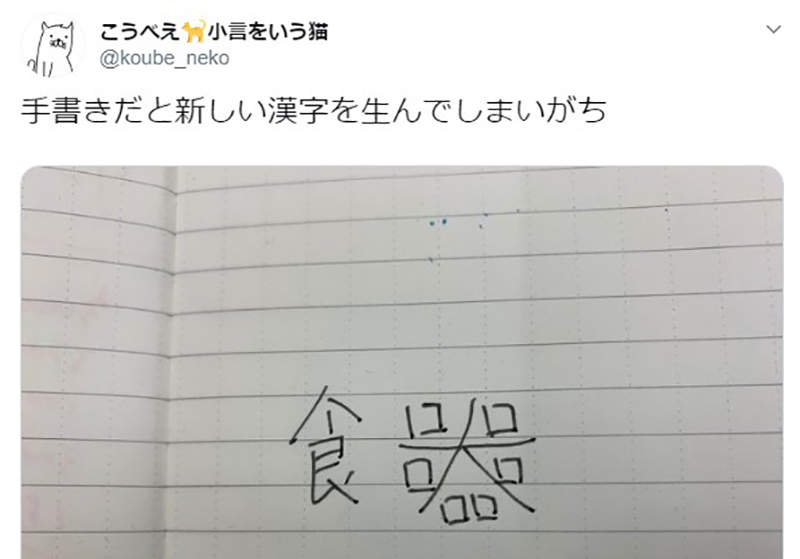 こうべえ🐈小言をいう猫
@koube_neko
手書きだと新しい漢字を生んでしまいがち
食器